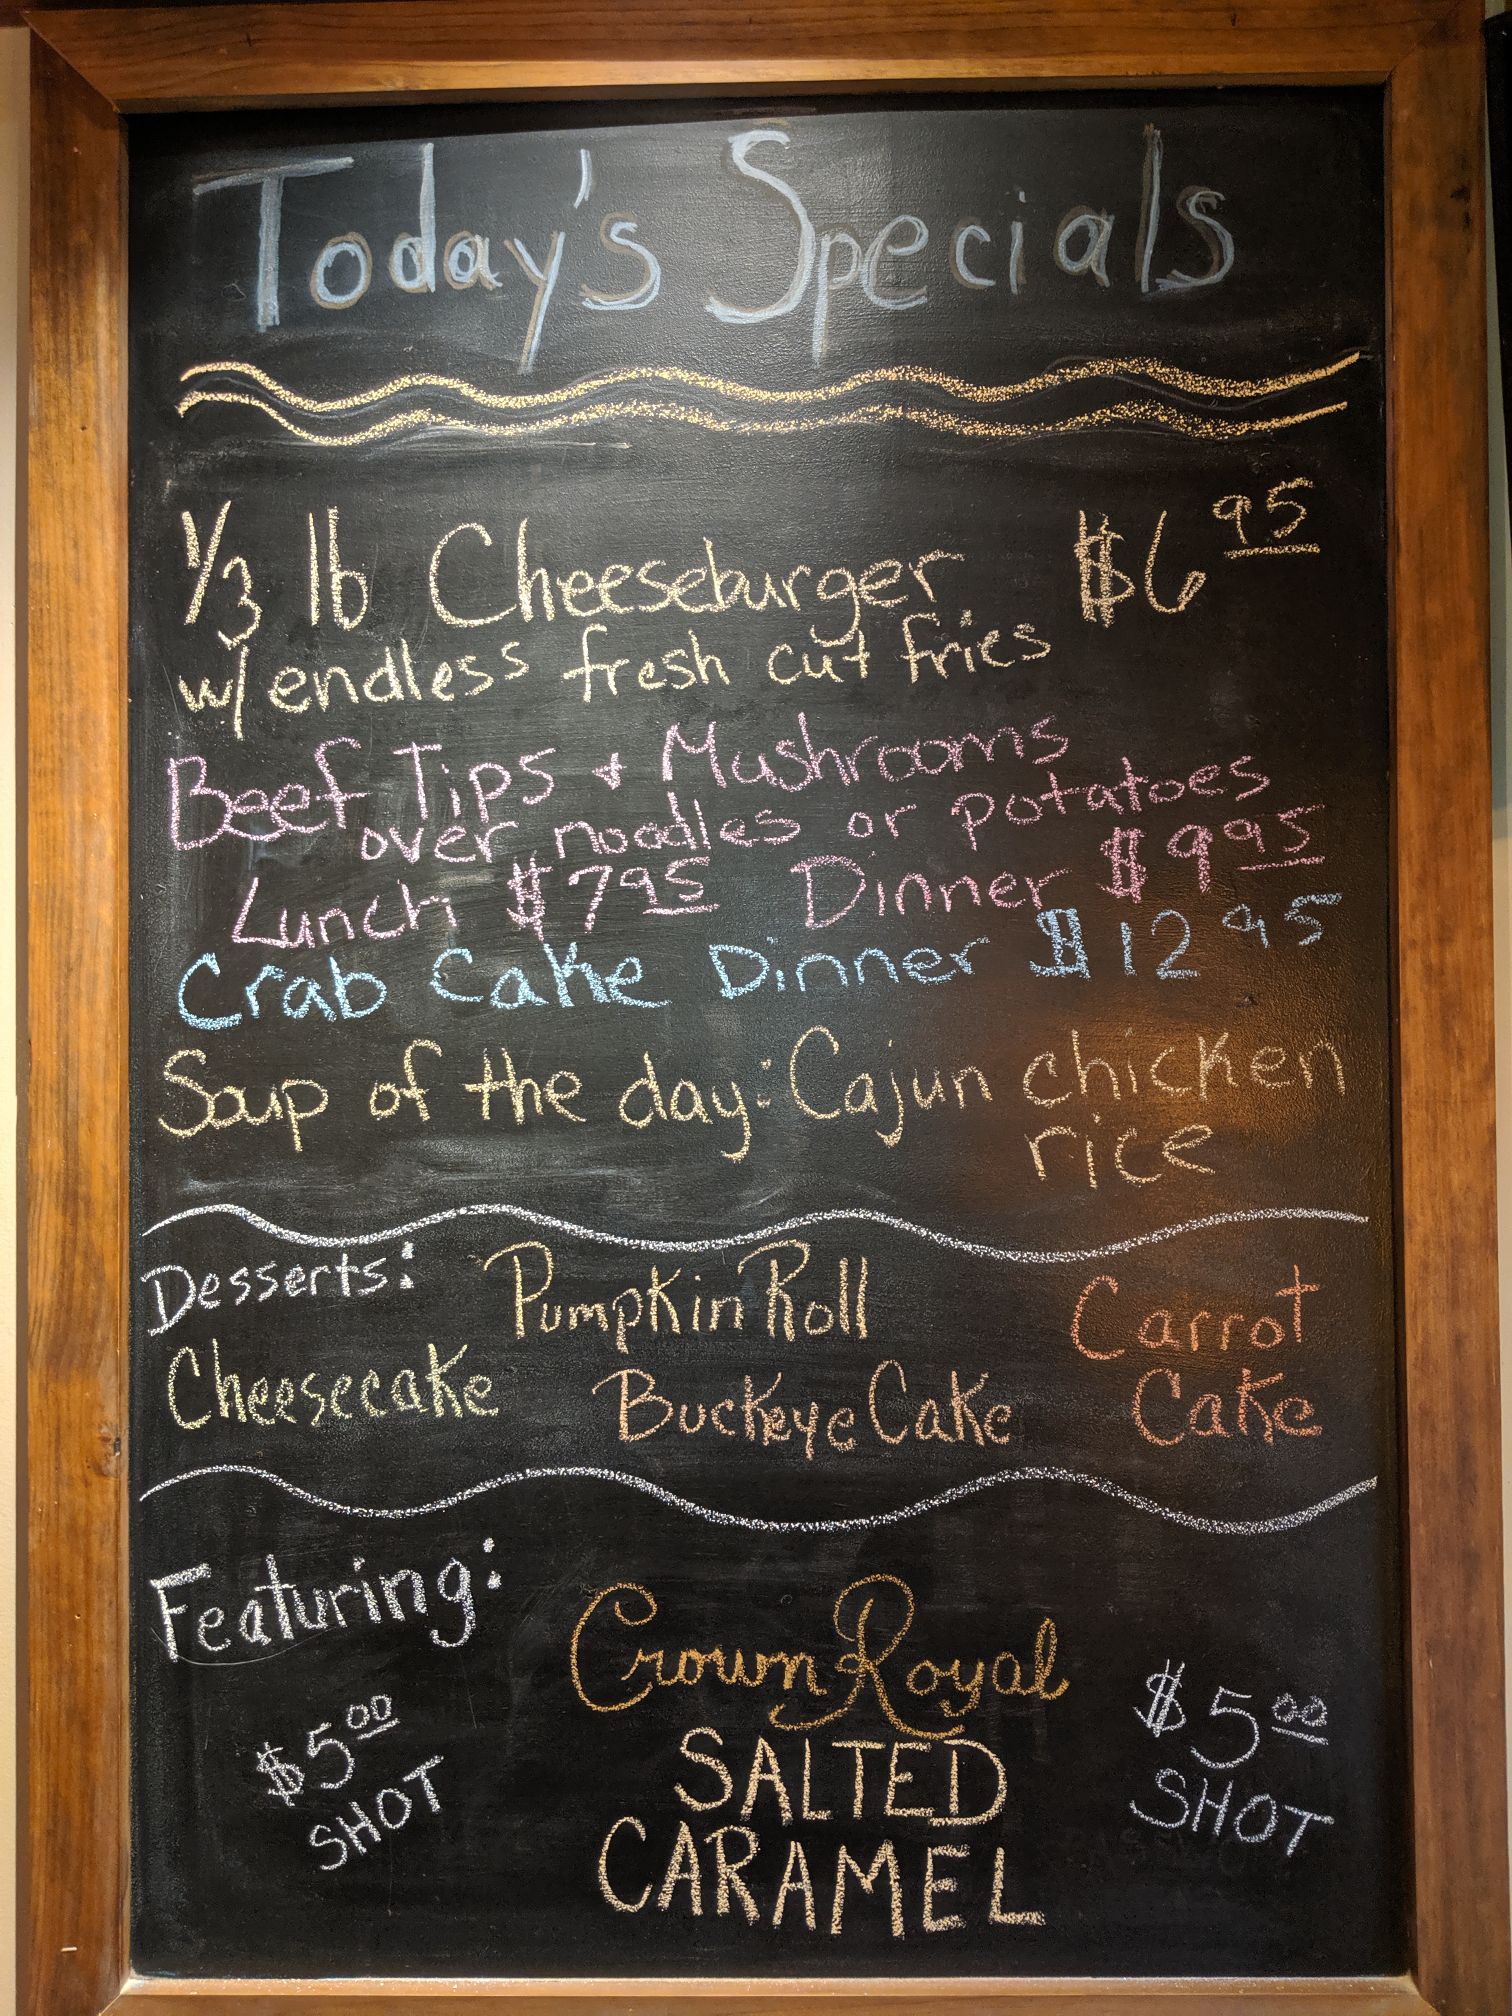 Today's Specials
1/3 lb Cheeseburger $6 95
w/ endless fresh cut fries
Beef Tips + Mushrooms
over noodles or potatoes
Lunch $7 95 Dinner $9 95
Crab Cake Dinner $12 95
Soup of the day: Cajun chicken
rice
Desserts: Pumpkin Roll Carrot
Cheesecake Buckeye Cake Cake
Featuring:
Crown Royal
SALTED
CARAMEL
$5 00
SHOT
$5 00
SHOT